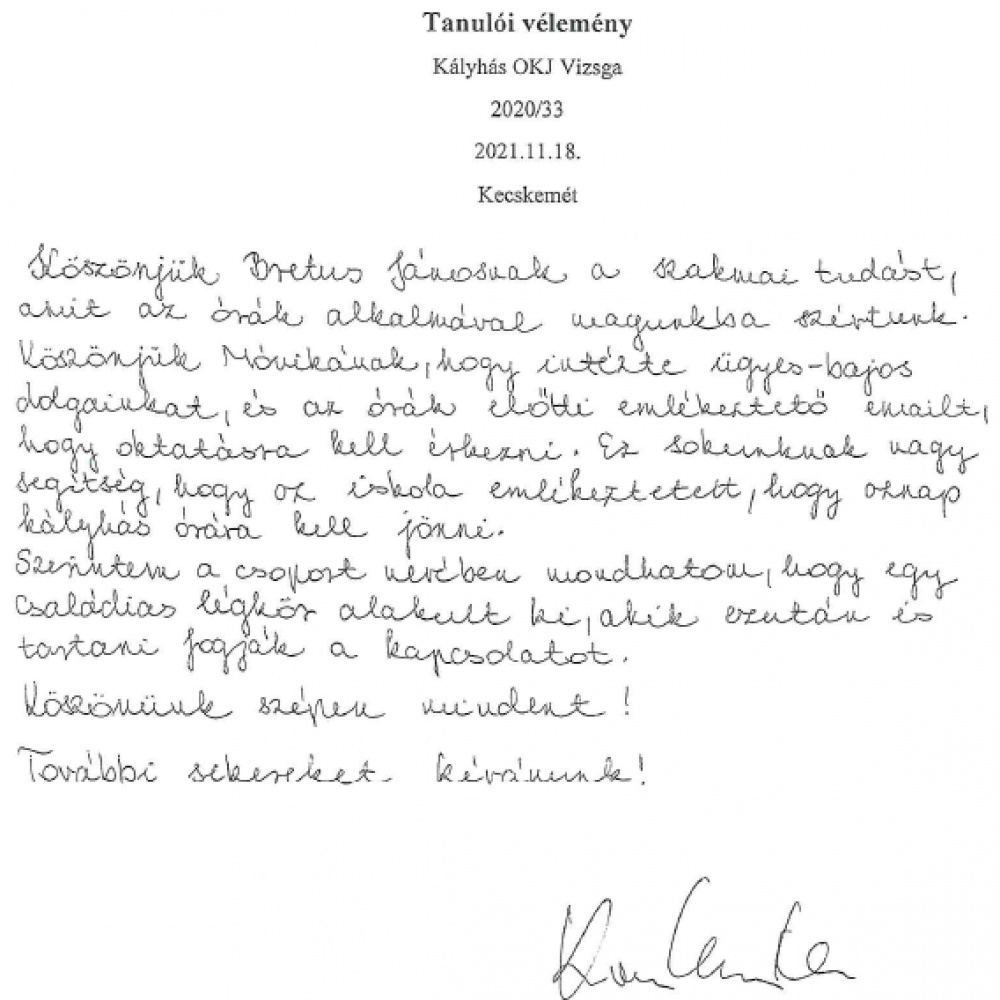 Tanulói vélemény
Kályhás OKJ Vizsga
2020/33
2021.11.18.
Kecskemét
Köszönjük Bretus Jánosnak a szakmai tudást,
amit az órák alkalmával magunkba szívtunk.
Köszönjük Mónikának, hogy intézte ügyes-bajos
dolgainkat, és az órák előtti emlékeztető emailt,
hogy oktatásra kell érkezni. Ez sokunknak nagy
segítség, hogy az iskola emlékeztetett, hogy aznap
kályhás órára kell jönni.
Szerintem a csoport nevében mondhatom, hogy egy
családias légkör alakult ki, akik ezután is
tartani fogják a kapcsolatot.
Köszönünk szépen mindent!
További sikereket kívánunk!